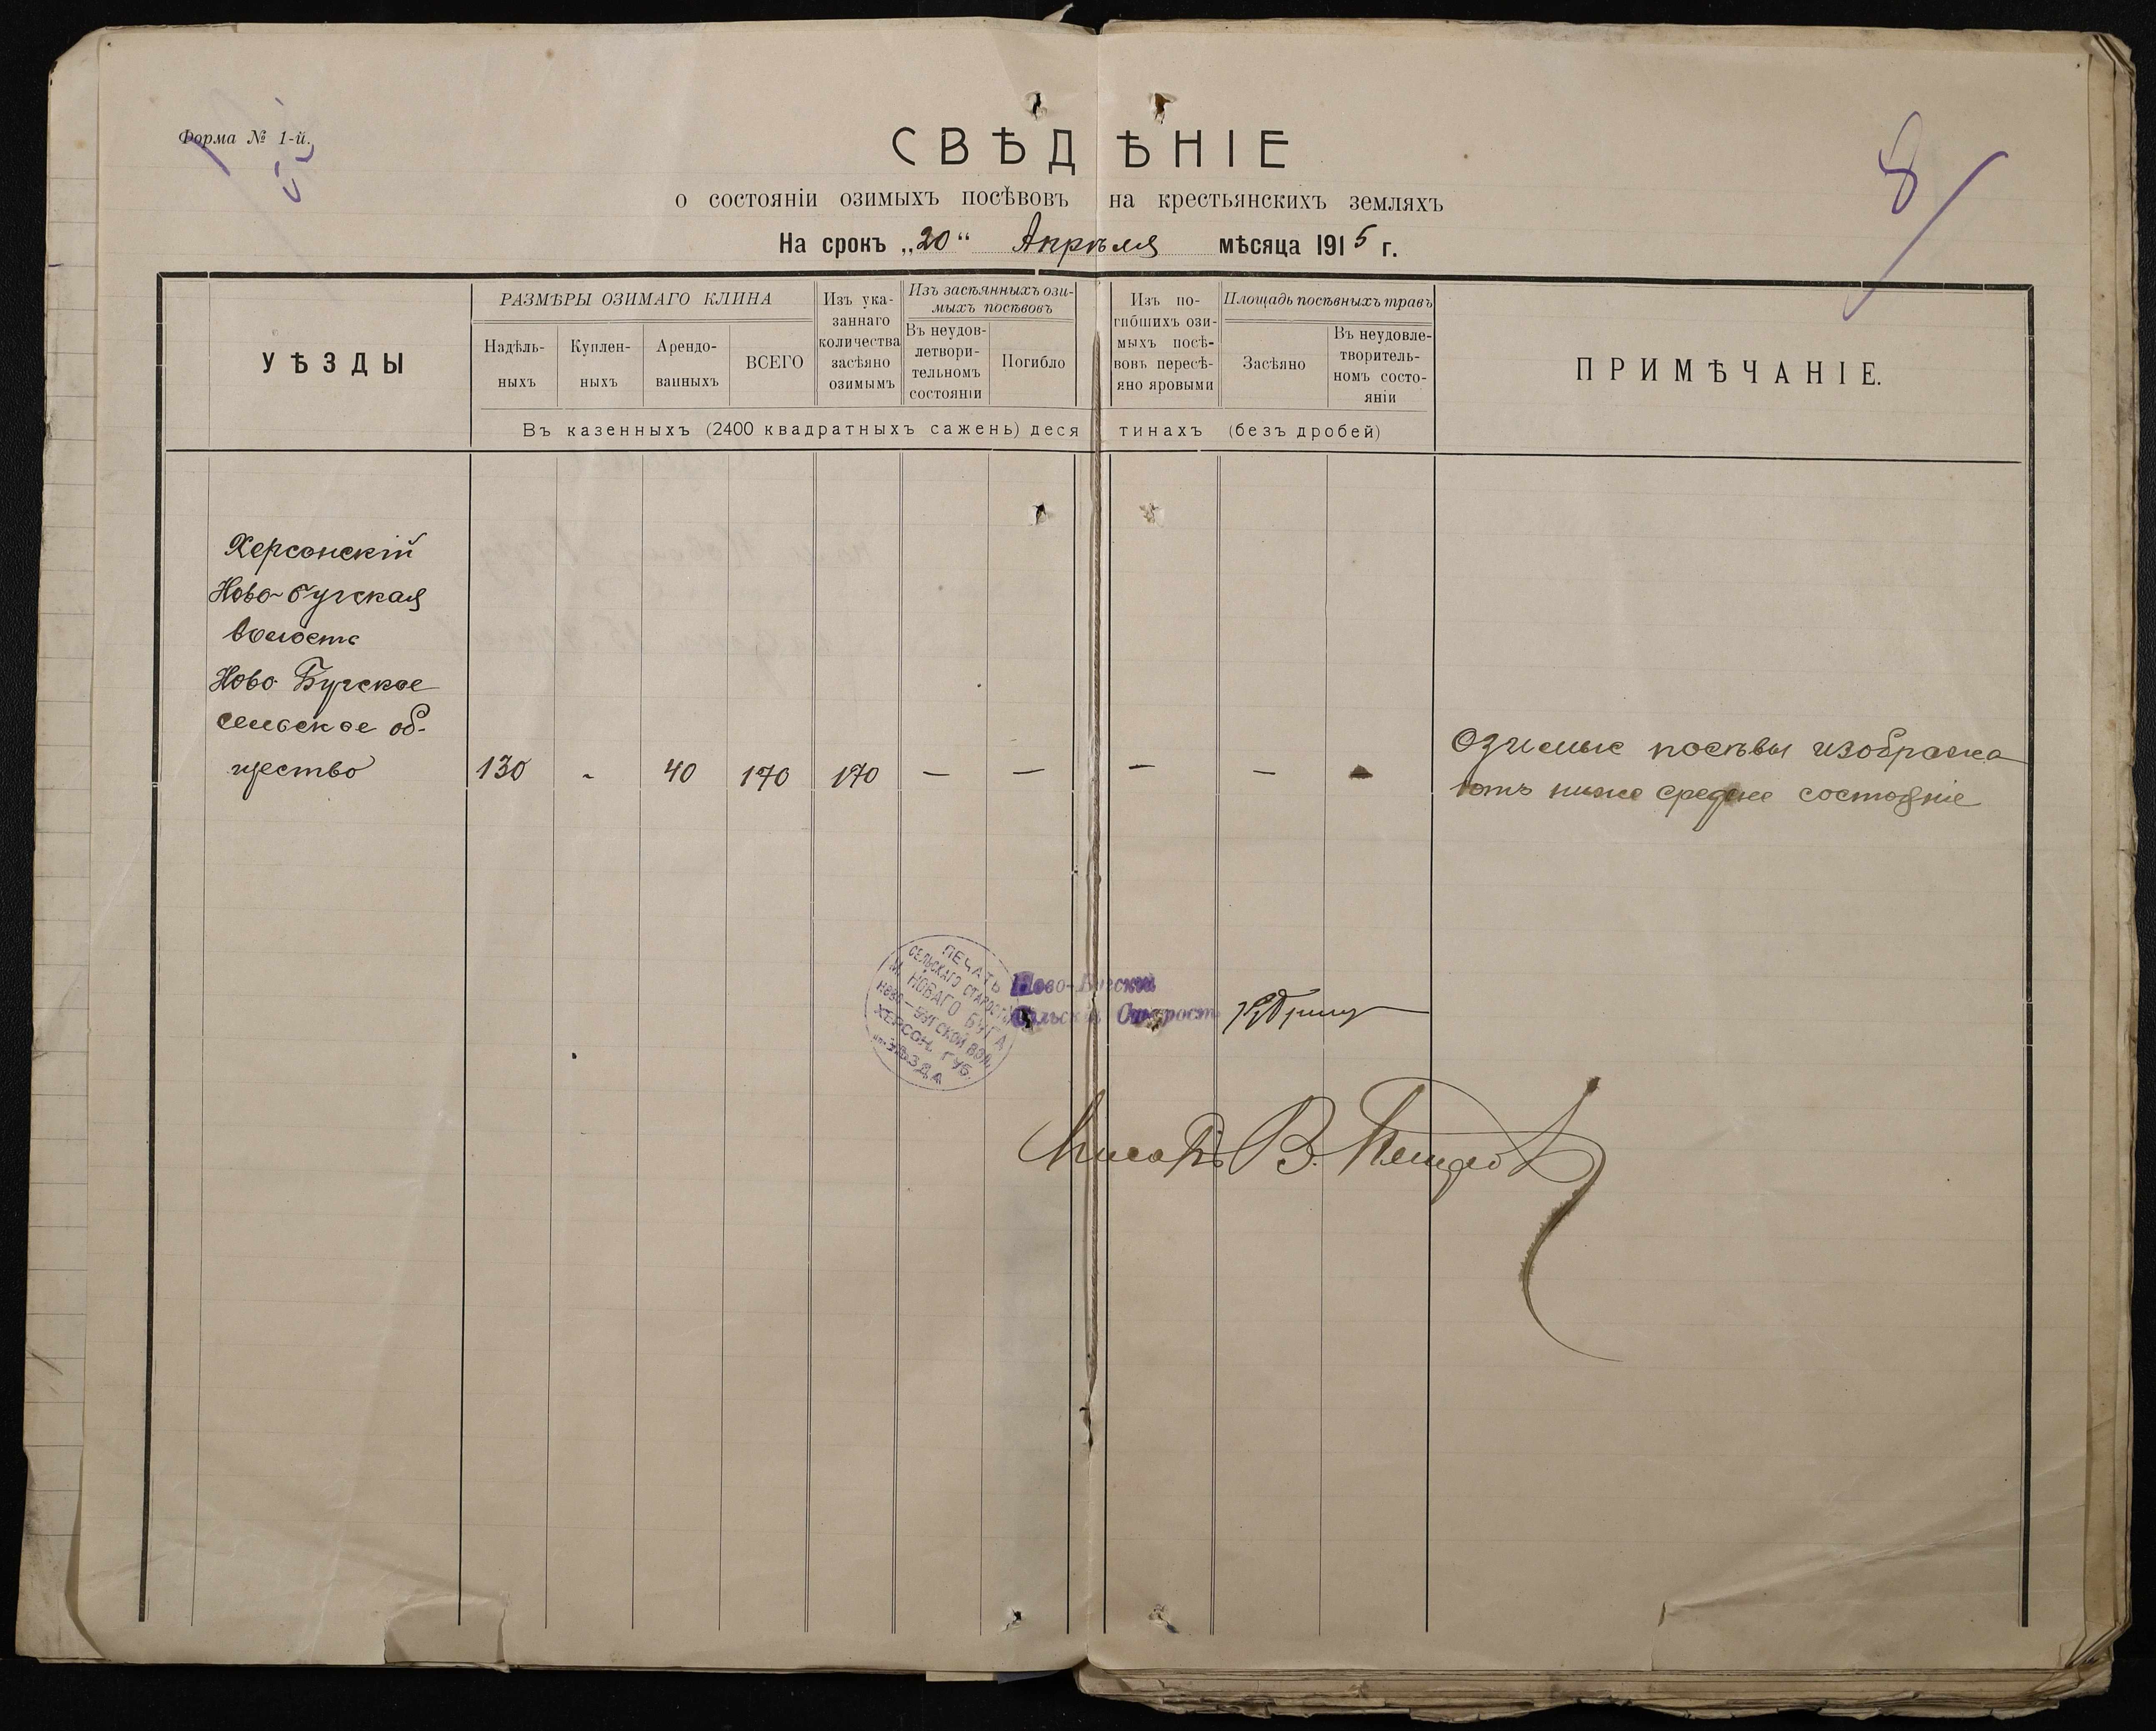 Форма № 1-й.
8
СВѢДѢНІЕ
о состояніи озимыхъ посѣвовъ на крестьянскихъ земляхъ
На срокъ „20“ Апрѣля мѣсяца 1915 г.
УѢЗДЫ
РАЗМѢРЫ ОЗИМАГО КЛИНА
Надѣль-
ныхъ
Куплен-
ныхъ
Арендо-
ванныхъ
ВСЕГО
Изъ ука-
заннаго
количества
засѣяно
озимымъ
Изъ засѣянныхъ ози-
мыхъ посѣвовъ
Въ неудов-
летвори-
тельномъ
состояніи
Погибло
Изъ по-
гибшихъ ози-
мыхъ посѣ-
вовъ пересѣ-
яно яровыми
Площадь посѣвныхъ травъ
Засѣяно
Въ неудовле-
творитель-
номъ состо-
яніи
ПРИМѢЧАНІЕ.
Въ казенныхъ (2400 квадратныхъ сажень) десятинахъ (безъ дробей)
Херсонскій
Ново-бугская
волость
Ново Бугское
сельское об-
щество 130 - 40 170 170 — — — — —
Озимые посѣвы изобража
ютъ ниже средне состояніе
ПЕЧАТЬ
СЕЛЬСКАГО СТАРОСТЫ
М. НОВАГО БУГА
НОВО-БУГСКОЙ ВОЛ.
ХЕРСОН. ГУБ.
УѢЗДА
Ново-Бугскій
Сельскій Старост
Писарь В.